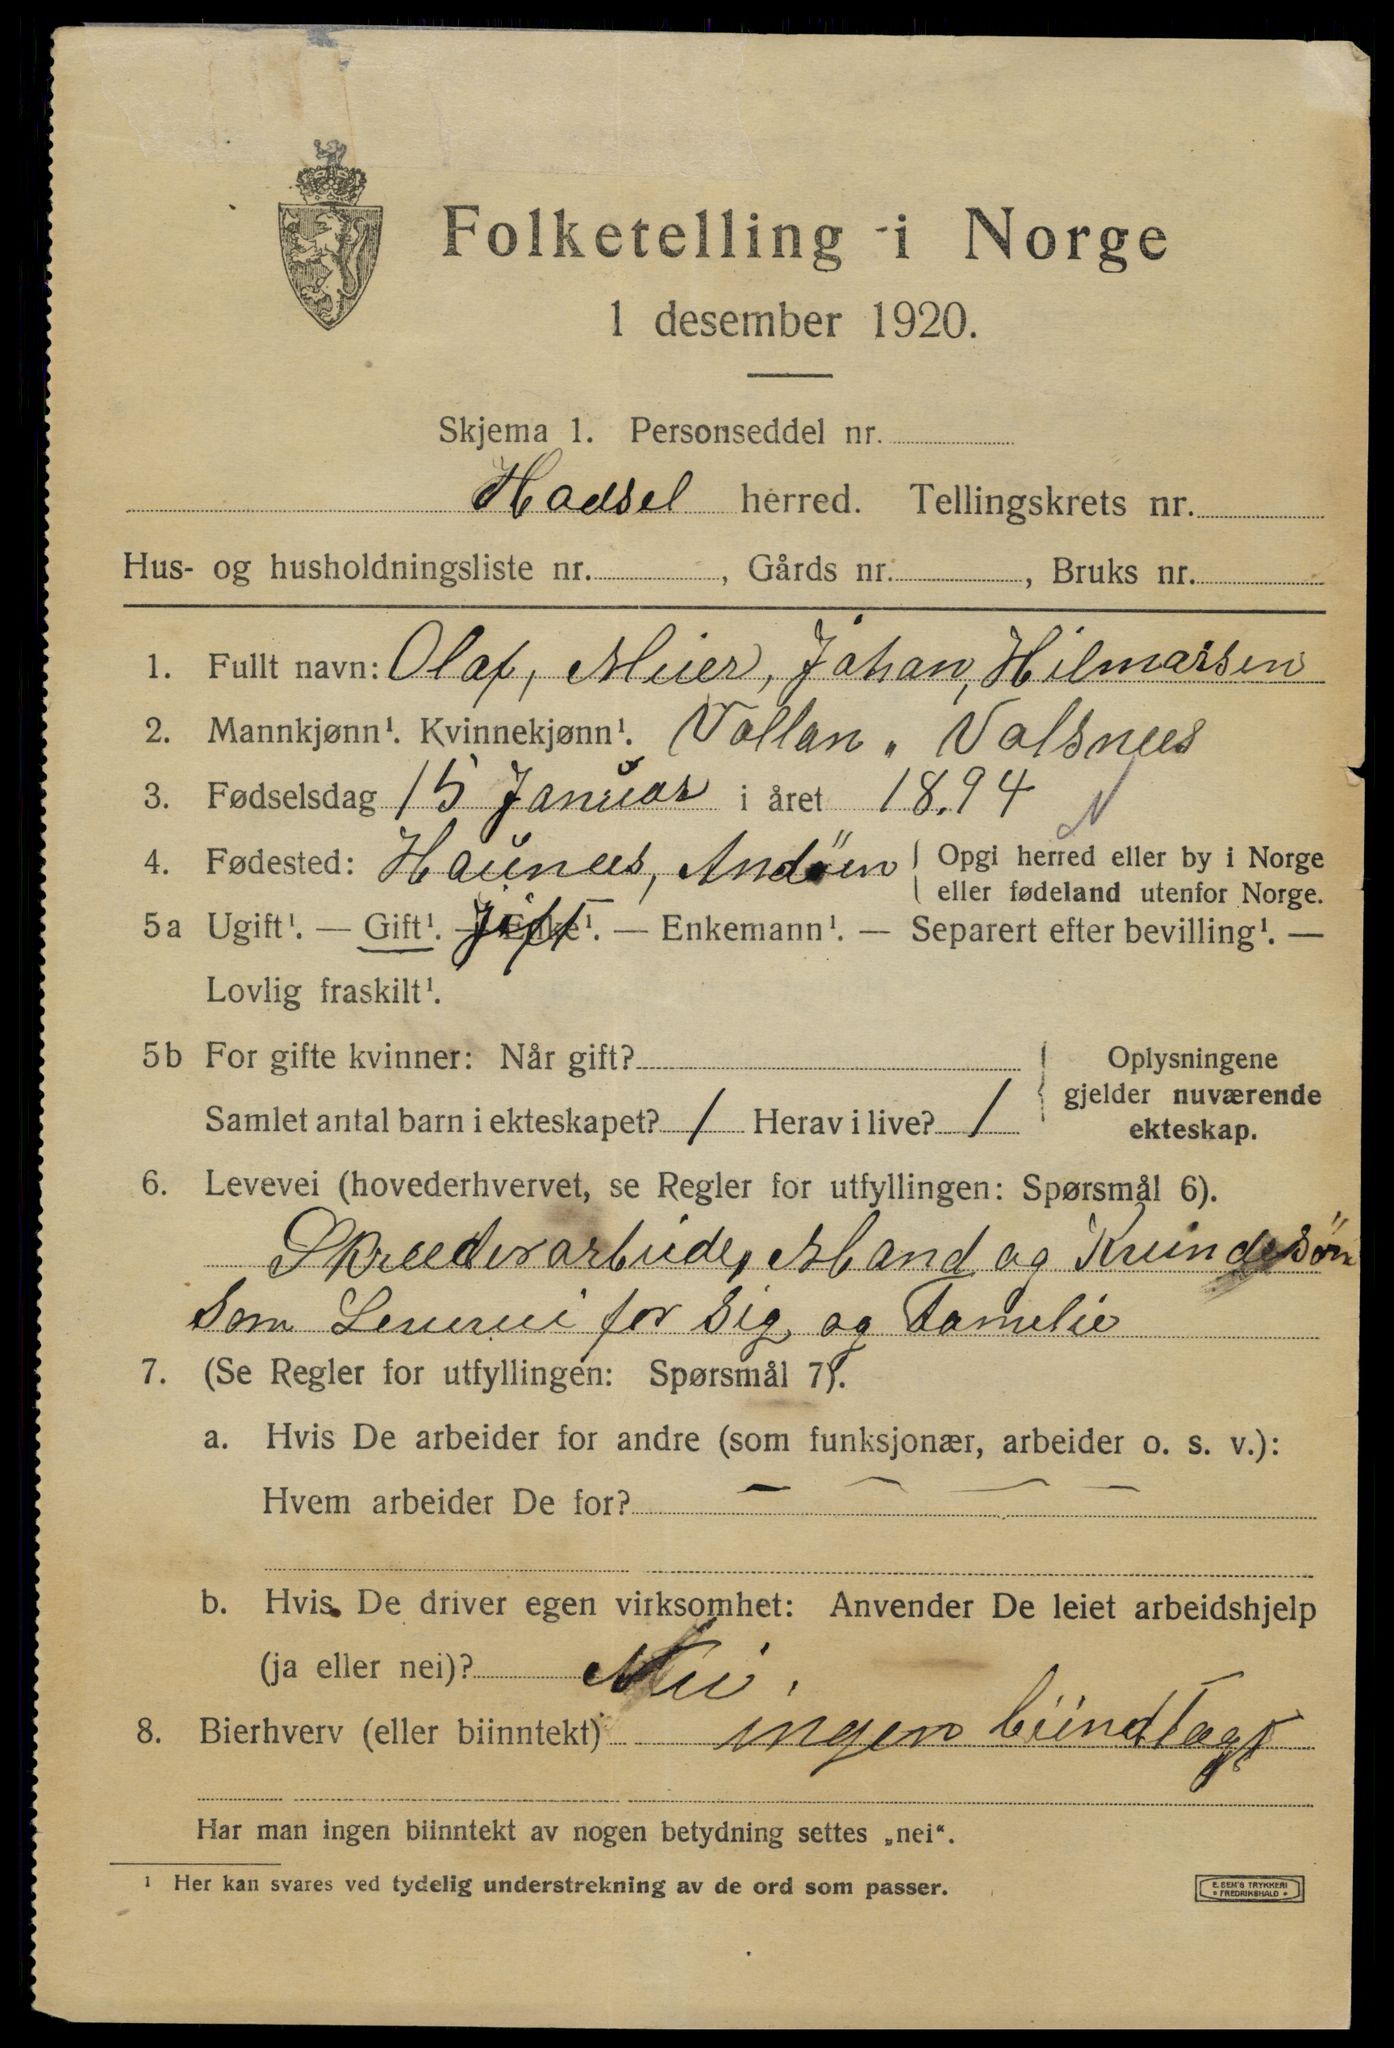 Folketelling i Norge
1 desember 1920.
Skjema 1. Personseddel nr.
Hadsel herred. Tellingskrets nr.
Hus- og husholdningsliste nr. , Gårds nr. , Bruks nr.
1. Fullt navn: Olaf, Meier, Johan, Hilmarsen
2. Mannkjønn¹. Kvinnekjønn¹. Vollan. Valsnees
3. Fødselsdag 15 Januar i året 1894
N
4. Fødested: Haünees, Andøen { Opgi herred eller by i Norge
eller fødeland utenfor Norge.
5a Ugift¹. — Gift¹. — Enke¹. Jift — Enkemann¹. — Separert efter bevilling¹. —
Lovlig fraskilt¹.
5b For gifte kvinner: Når gift? { Oplysningene
gjelder nuværende
Samlet antal barn i ekteskapet? 1 Herav i live? 1 ekteskap.
6. Levevei (hovederhvervet, se Regler for utfyllingen: Spørsmål 6).
Skreederarbeide, Mand og
som for sig og Famelie
7. (Se Regler for utfyllingen: Spørsmål 7).
a. Hvis De arbeider for andre (som funksjonær, arbeider o. s. v.):
Hvem arbeider De for? — — — —
b. Hvis De driver egen virksomhet: Anvender De leiet arbeidshjelp
(ja eller nei)? Nei.
8. Bierhverv (eller biinntekt) ingen biindtægt
Har man ingen biinntekt av nogen betydning settes „nei“.
¹ Her kan svares ved tydelig understrekning av de ord som passer.
E. SEM'S TRYKKERI
FREDRIKSHALD